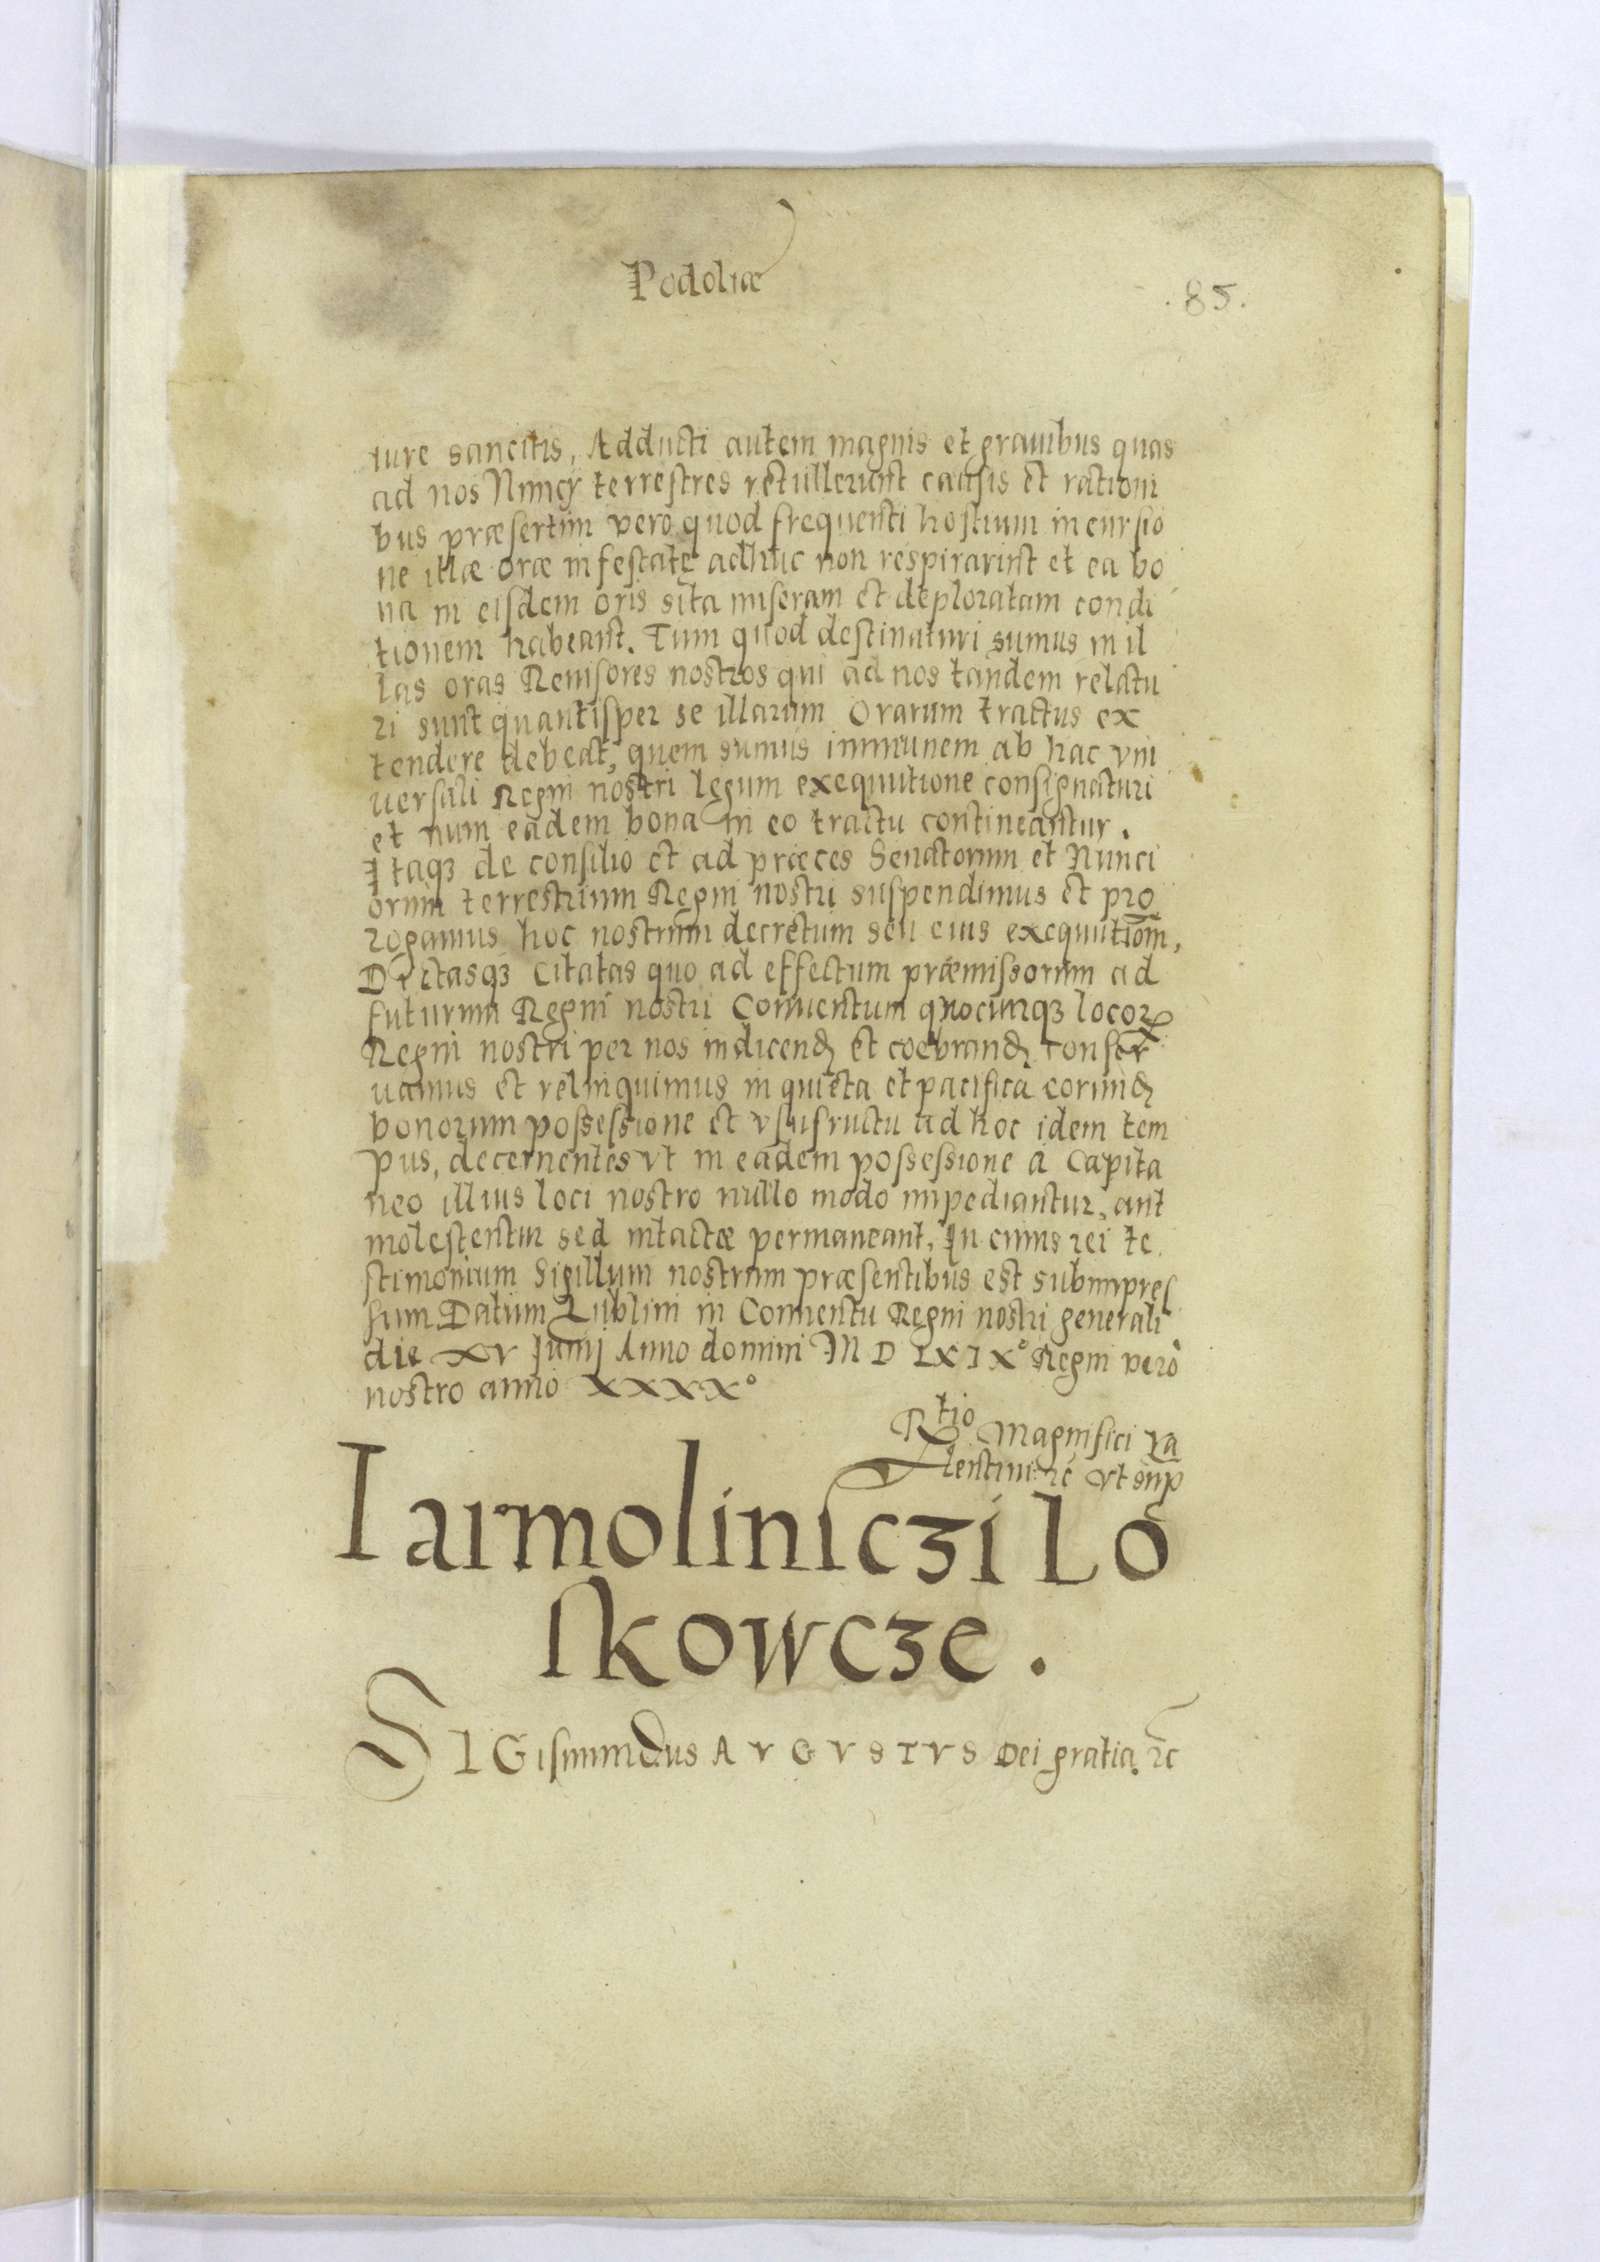 Podoliæ
.85.
iure sancitis, Adducti autem magnis et grauibus quas
ad nos Nuncÿ terrestres retullerunt causis et rationi
bus præsertim vero quod frequenti hostium incursio
ne illæ oræ infestatę adhuc non respirarint et ea bo
na in eisdem oris sita miseram et deploratam condi
tionem habeant. Tum quod destinaturi sumus in il
las oras Reuisores nostros qui ad nos tandem relatu
ri sunt quantisper se illarum Orarum tractus ex
tendere debeat, quem sumus immunem ab hac vni
uersali Regni nostri legum exequutione consignaturi
et num eadem bona in eo tractu contineantur.
Itaqꝫ de consilio et ad præces Senatorum et Nunci
orum terrestrium Regni nostri suspendimus et pro
rogamus hoc nostrum decretum seu eius exequutiom̄,
Dictasqꝫ citatas quo ad effectum præmissorum ad
futurum Regni nostri Conuentum quocunqꝫ locoꝝ
Regni nostri per nos indicend et coebrand conser
uamus et relinquimus in quieta et pacifica eorund
bonorum possessione et vsufructu ad hoc idem tem
pus, decernentes vt in eadem possessione a Capita
neo illius loci nostro nullo modo impediantur, aut
molestentur sed intactæ permaneant, In cuius rei te
stimonium Sigillum nostrum præsentibus est subimpres
sum Datum Lublini in Conuentu Regni nostri generali
die XV Junij Anno domini M D LXIX° Regni vero
nostro anno XXXX°
Rtio Magnifici Va
lentini ꝛc vt sup
Iarmoliniczi Lo
skowcze.
SIGismundus AVGVSTVS Dei gratia. ꝛc